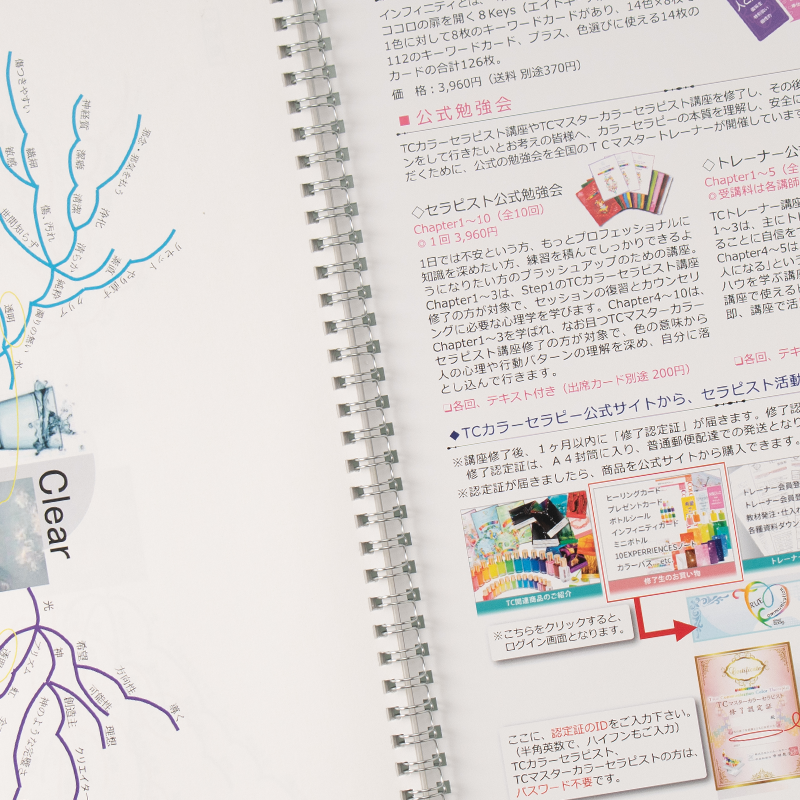 傷つきやすい
敏感
繊細
神経質
潔癖
清潔
邪念・邪気を払う
浄化
傷、汚れ
世間知らず
清らか
素直
リセット
やり直す
クリア
純粋
濁りの無い
透明
水
Clear
光
プリズム
虹
神
希望
可能性
方向性
導く
理想
創造主
クリエイター
神のような完璧さ
インフィニティとは、
ココロの扉を開く８Keys（エイトキー
1色に対して8枚のキーワードカードがあり、14色×8枚で
112のキーワードカード、プラス、色選びに使える14枚の
カードの合計126枚。
価　格：3,960円（送料 別途370円）
■公式勉強会
TCカラーセラピスト講座やTCマスターカラーセラピスト講座を修了し、その後
ンをして行きたいとお考えの皆様へ、カラーセラピーの本質を理解し、安全に
だくために、公式の勉強会を全国のＴＣマスタートレーナーが開催しています
◇セラピスト公式勉強会
Chapter1～10（全10回）
◎１回 3,960円
1日では不安という方、もっとプロフェッショナルに
知識を深めたい方、練習を積んでしっかりできるよ
うになりたい方のブラッシュアップのための講座。
Chapter1～3は、Step1のTCカラーセラピスト講座
修了の方が対象で、セッションの復習とカウンセリ
ングに必要な心理学を学びます。Chapter4～10は、
Chapter1～3を学ばれ、なお且つTCマスターカラー
セラピスト講座修了の方が対象で、色の意味から
人の心理や行動パターンの理解を深め、自分に落
とし込んで行きます。
❏各回、テキスト付き（出席カード別途 200円）
◇トレーナー公
Chapter1～5（全
◎受講料は各講師
TCトレーナー講座
1～3は、主にト
ることに自信を
Chapter4～5は
人になる」という
ハウを学ぶ講座
講座で使えるヒ
即、講座で活
❏各回、テキ
◆TCカラーセラピー公式サイトから、セラピスト活動
※講座修了後、１ヶ月以内に「修了認定証」が届きます。修了認
修了認定証は、Ａ４封筒に入り、普通郵便配達での発送となり
※認定証が届きましたら、商品を公式サイトから購入できます。
TC関連商品のご紹介
ヒーリングカード
プレゼントカード
ボトルシール
インフィニティカード
ミニボトル
10EXPERRIENCESノート
カラーパス
修了生のお買い物
トレーナー会員登
トレーナー会員
教材発注・仕入れ
各種資料ダウン
トレーナー
※こちらをクリックすると、
ログイン画面となります。
TCマスターカラーセラピスト
修了認定証
ここに、認定証のIDをご入力下さい。
（半角英数で、ハイフンもご入力）
TCカラーセラピスト、
TCマスターカラーセラピストの方は、
パスワード不要です。